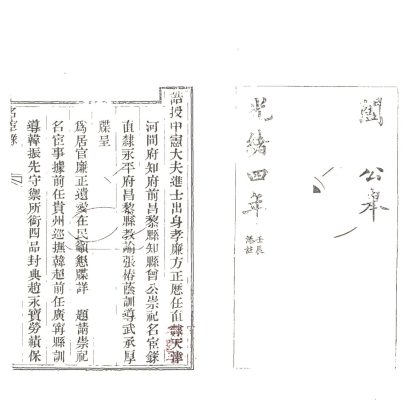 公
光緒四年
誥授中憲大夫進士出身孝廉方正歷任直隸天津
河間府知府前昌黎縣知縣曾公崇祀名宦錄
直隸永平府昌黎縣教諭張椿蔭訓導武承厚
牒呈
為居官廉正遺愛在民籲懇牒詳 題請崇祀
名宦事據前任貴州巡撫韓超前任廣甯縣訓
導韓振先守禦所銜四品封典趙永寶勞績保
名宦錄